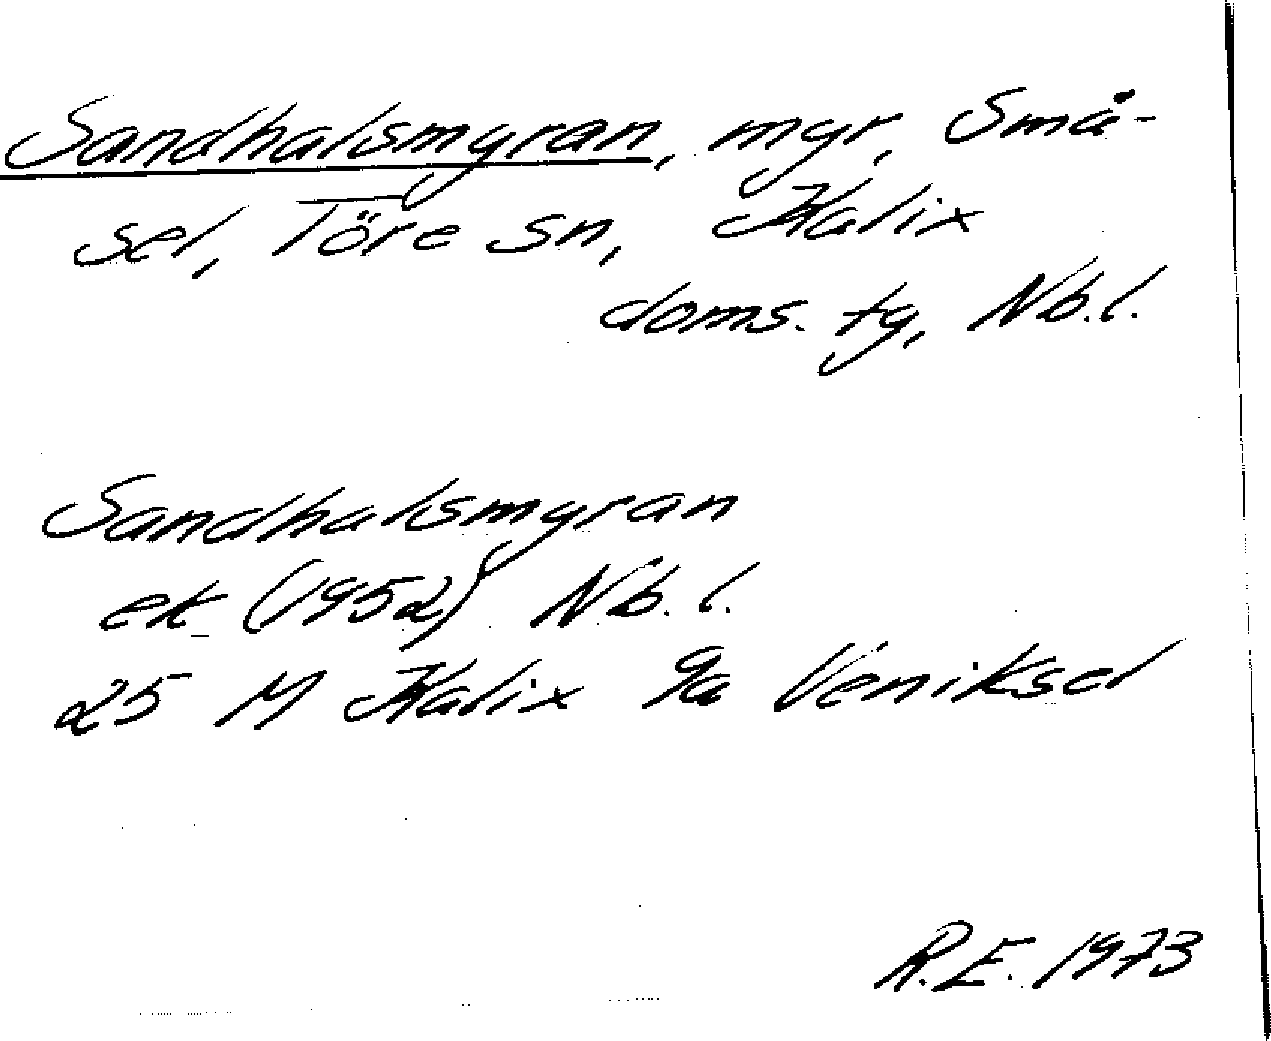 Sandhalsmyran, myr, Små-
sel, Töre sn, Kalix
doms. tg, Nb.l.
Sandhalsmyran
ek (1952) Nb.l.
25 M Kalix 9a Veniksel
R.E. 1973